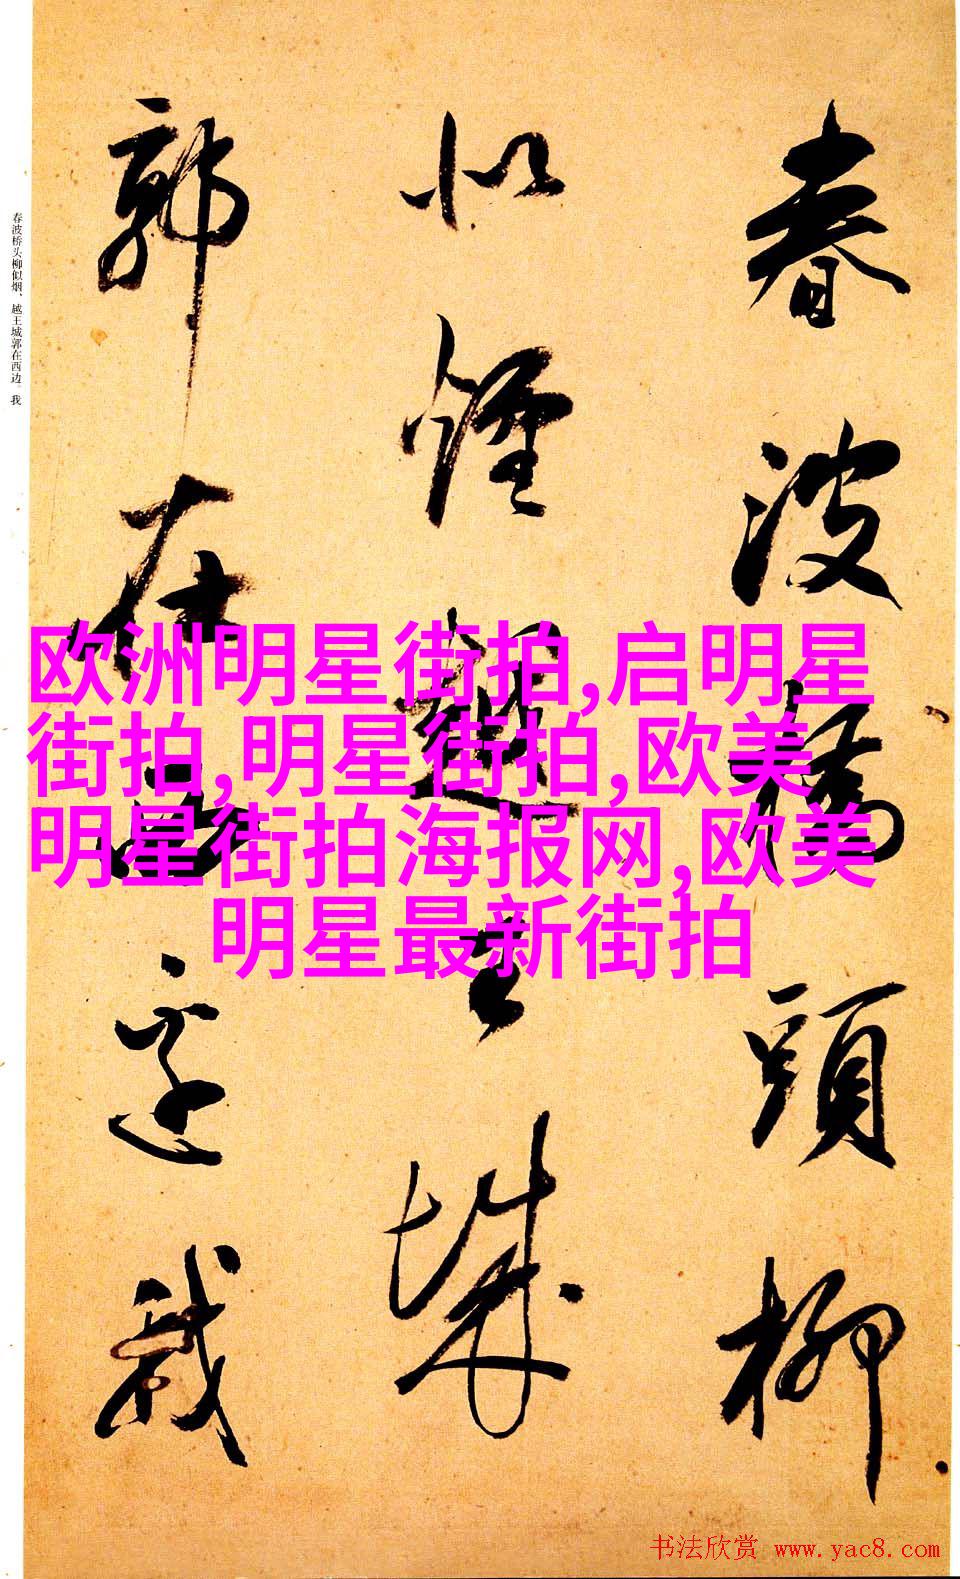 春波橋頭柳
似煙越王城
郭在西邊我
春波桥头柳似烟、越王城郭在西边。我
欧洲明星街拍,启明星
街拍,明星街拍,欧美
明星街拍海报网,欧美
明星最新街拍
书法欣赏 www.yac8.com